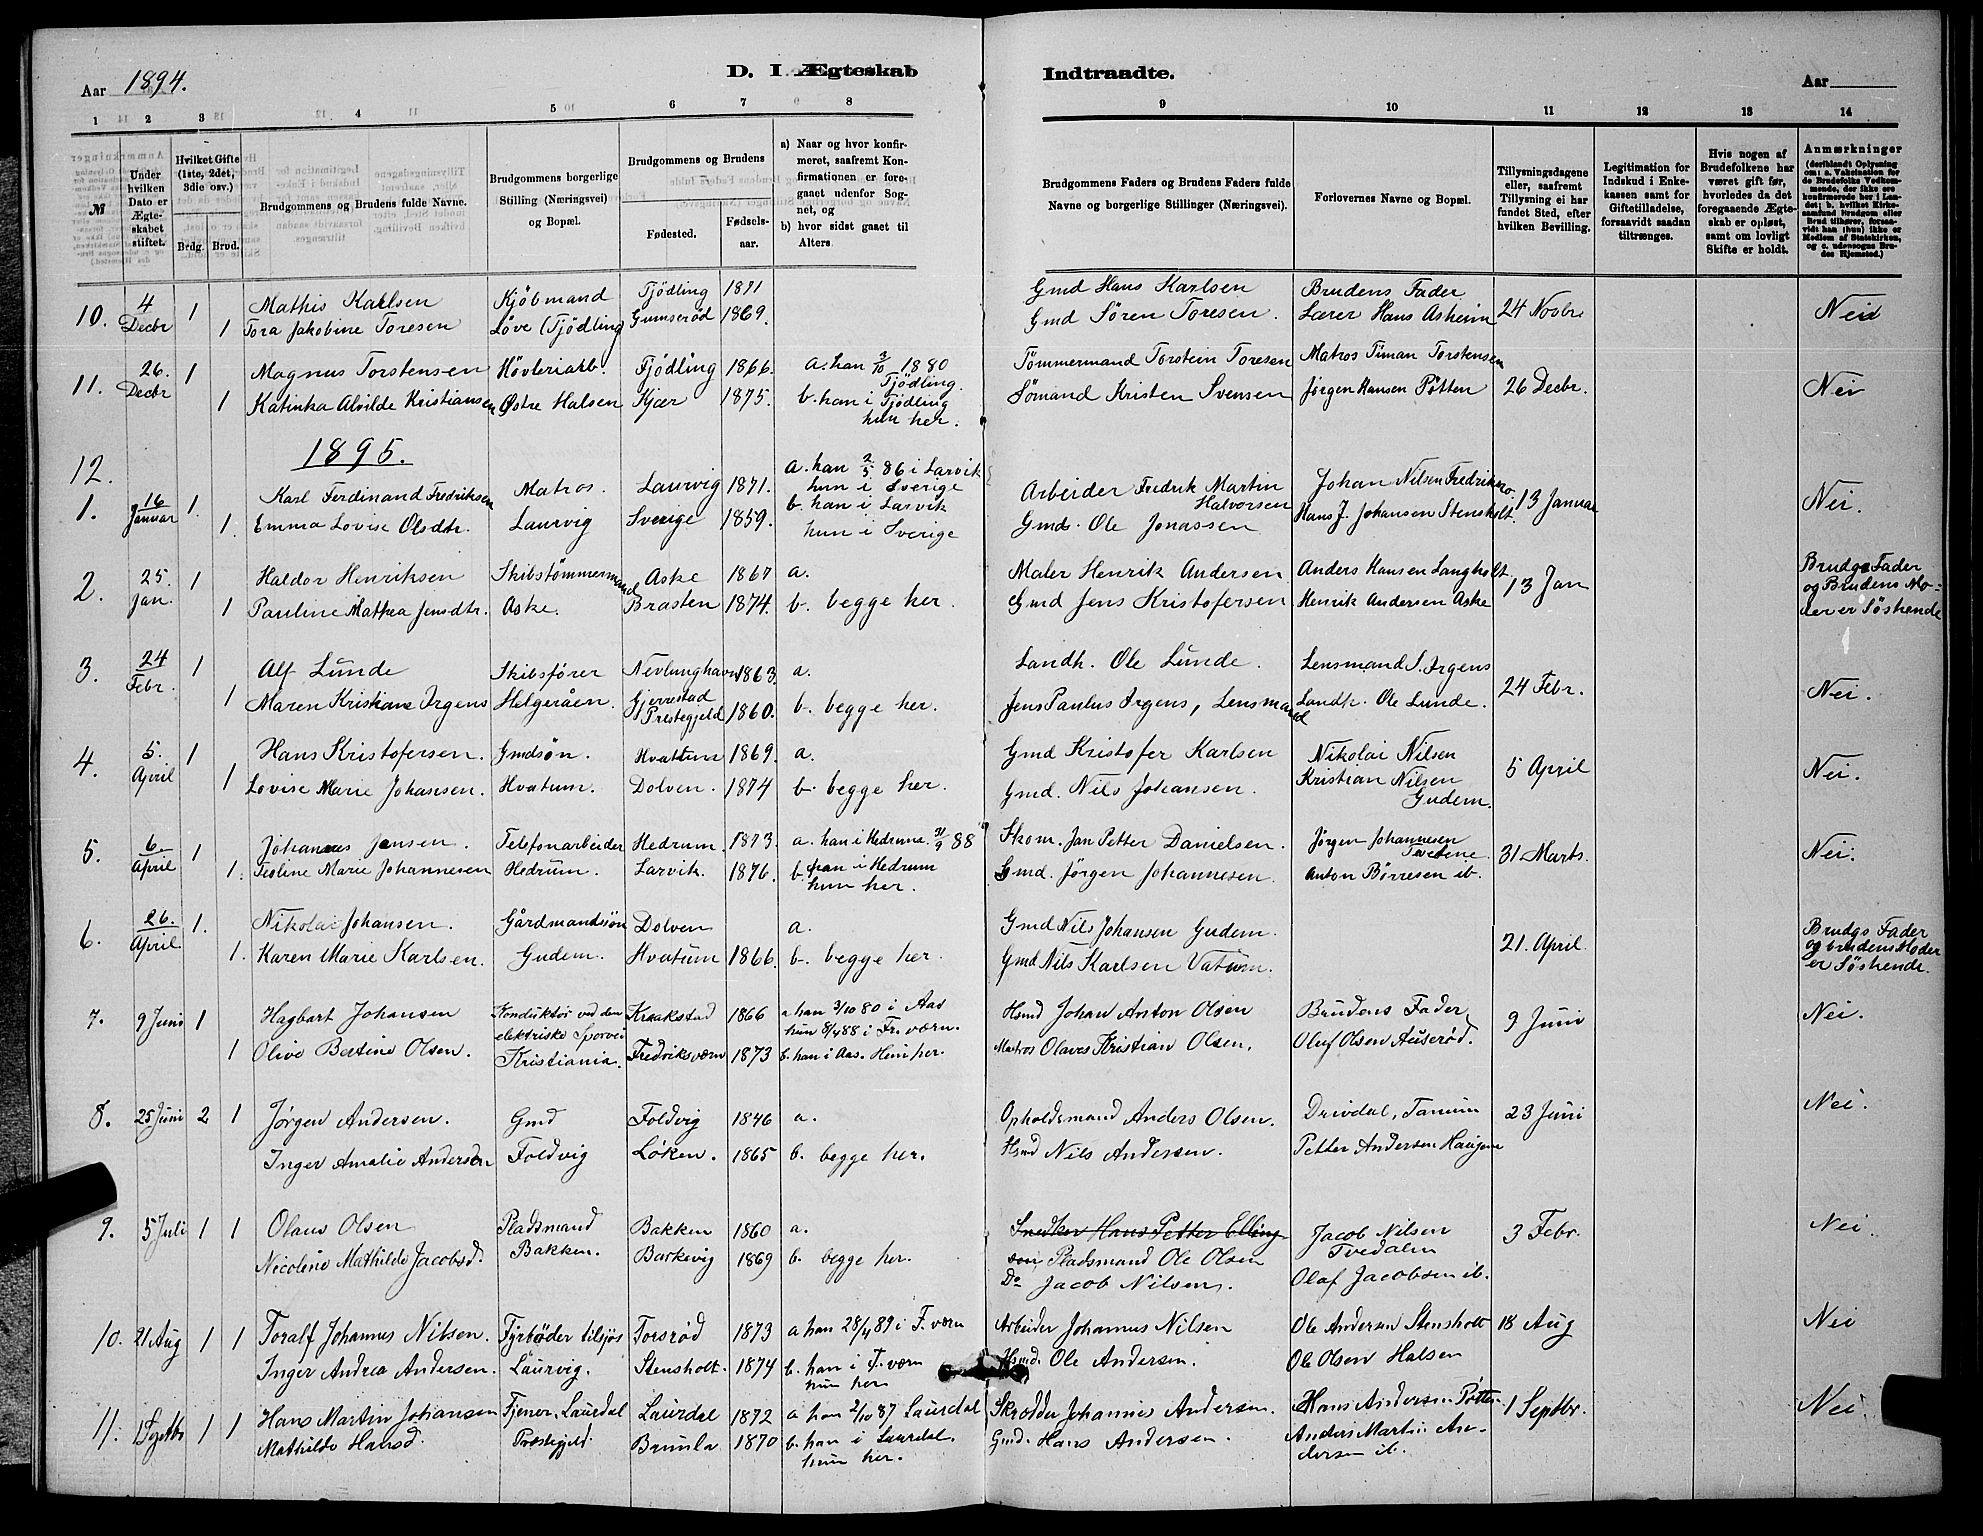 Aar 1894.
D. I. Ægteskab
Indtraadte.
Aar
1 2 3 4 5 6 7 8 9 10 11 12 13 14
№
Under hvilken Dato er Ægteskabet stiftet.
Hvilket Gifte (1ste, 2det, 3die osv.)
Brdg. Brud.
Brudgommens og Brudens fulde Navne.
Brudgommens borgerlige Stilling (Næringsvei) og Bopæl.
Brudgommens og Brudens
Fødested. Fødselsaar.
a) Naar og hvor konfirmeret, saafremt Konfirmationen er foregaaet udenfor Sognet, og
b) hvor sidst gaaet til Alters.
Brudgommens Faders og Brudens Faders fulde Navne og borgerlige Stillinger (Næringsvei).
Forlovernes Navne og Bopæl.
Tillysningsdagene eller, saafremt Tillysning ei har fundet Sted, efter hvilken Bevilling.
Legitimation for Indskud i Enkekassen samt for Giftetilladelse, forsaavidt saadan tiltrænges.
Hvis nogen af Brudefolkene har været gift før, hvorledes da det foregaaende Ægteskab er opløst, samt om lovligt Skifte er holdt.
Anmærkninger (deriblandt Oplysning om: a. Vaksination for de Brudefolks Vedkommende, der ikke ere konfirmerede her i Landet; b. hvilket Kirkesamfund Brudgom eller Brud tilhører, forsaavidt han (hun) ikke er Medlem af Statskirken, og c. udensogns Brudes Hjemsted.)
10. 4 Decbr 1 Mathis Karlsen Kjöbmand Tjödling 1871 Gmd Hans Karlsen Brudens Fader 24 Novbr Nei
1 Tora Jakobine Toresen Löve (Tjödling) Gumserød 1869. Gmd Sören Toresen. Lærer Hans Asheim
11. 26. Decbr 1 Magnus Torstensen Hövleriarb. Tjödling 1866. a. han 3/10 1880 Tjödling. Tömmermand Torstein Toresen Matros Timan Torstensen 26 Decbr. Nei
1 Katinka Alvilde Kristiansen Østre Halsen Kjær 1875. b. han i Tjödling hun her. Sömand Kristen Svensen Jørgen Hansen Pøtten
1895.
12.
1. 16 Januar 1. Karl Ferdinand Fredriksen Matros. Laurvig 1871. a. han 2/5 86 i Larvik hun i Sverige Arbeider Fredrik Martin Halvorsen Johan Nilsen Fredriksvo. 13 Januar Nei.
1. Emma Lovise Olsdtr. Laurvig Sverige 1859. b. han i Larvik hun i Sverige Gmd. Ole Jonassen Hans J. Johansen Stensholt.
2. 25. Jan. 1 Haldor Henriksen Skibstömmermand Aske 1867 a. Maler Henrik Andersen Anders Hansen Langholt 13 Jan Brudgs Fader og Brudens Moder er Söskende
1 Pauline Mathea Jensdtr. Aske. Brasten 1874. b. begge her. Gmd Jens Kristofersen Henrik Andersen Aske
3. 24 Febr. 1 Alf Lunde Skibsförer Nevlunghavn 1863. a. Landh. Ole Lunde. Lensmand S. Irgens 24 Febr. Nei.
1 Maren Kristiane Irgens Helgeråen. Gjerrestad Prestegjeld 1860. b. begge her. Jens Paulus Irgens, Lensmand Landh. Ole Lunde.
4. 5. April 1 Hans Kristofersen. Gmdsön. Hvattum 1869. a. Gmd Kristofer Karlsen Nikolai Nilsen 5 April Nei.
1 Lovise Marie Johansen. Hvatum. Dolven. 1874 b. begge her. Gmd. Nils Johansen. Kristian Nilsen Gudem.
5. 6. April 1 Johannes Jensen. Telefonarbeider Hedrum. 1873. a. han i Hedrum 88 Skom. Jan Petter Danielsen. Jørgen Johannesen Tvetene 31. Marts. Nei.
1. Teoline Marie Johannesen Hedrum. Larvik. 1876. b. han i Hedrum hun her. Gmd. Jørgen Johannesen. Anton Børresen ib.
6. 26. April 1. Nikolai Johansen. Gårdmandsön Dolven a. Gmd Nils Johansen Gudem. 21. April Brudgs Fader og brudens Moder er Söskende.
1. Karen Marie Karlsen. Gudem. Hvatum 1866. b. begge her. Gmd Nils Karlsen Vatum.
7. 9 Juni 1 Hagbart Johansen Konduktör ved den elektriske Sporvei Kraakstad 1866 a. han 3/10 80 i Aas hun 8/4 88 i Fr. værn. Hsmd Johan Anton Olsen Brudens Fader 9 Juni Nei.
1 Olive Bertine Olsen. Kristiania. Fredriksværn 1873 b. han i Aas. Hun her. Matros Olaves Kristian Olsen. Oluf Olsen Auserød.
8. 25 Juni 2 1 Jørgen Andersen. Gmd Foldvig 1846 a. Opholdsmand Anders Olsen. Drivdal, Tanum 23 Juni Nei.
Inger Amalie Andersen Foldvig Løken. 1865 b. begge her. Hsmd Nils Andersen. Petter Andersen Haugen
9. 5 Juli 1 1 Olaus Olsen Pladsmand Bakken 1860 a. Snedker Hans Petter Ellingsen Pladsmand Ole Olsen Jacob Nilsen Tvedalen 3 Febr. Nei.
Nicoline Mathilde Jacobsd. Bakken. Barkevig 1869 b. begge her. Do Jacob Nilsen. Olaf Jacobsen ib.
10. 21 Aug 1 1 Toralf Johannes Nilsen. Fyrböder tilsjös Torsrød 1873 a han 28/4 89 i F. værn Arbeider Johannes Nilsen Ole Andersen Stensholt 18 Aug Nei
Inger Andrea Andersen. Laurvig. Stensholt. 1874 b. han i F. værn hun her Hsmd. Ole Andersen. Ole Olsen Halsen
11. 1 Septbr 1 1 Hans Martin Johansen Tjener, Laurdal Laurdal 1872 a han 2/10 87 Laurdal Skrædder Johannes Andersen. Hans Andersen Pøtten 1 Septbr. Nei
Mathilde Hansd. Præstegjeld Brunla 1870 b. han i Laurdal. hun her. Gmd. Hans Andersen. Anders Martin Andersen ib.